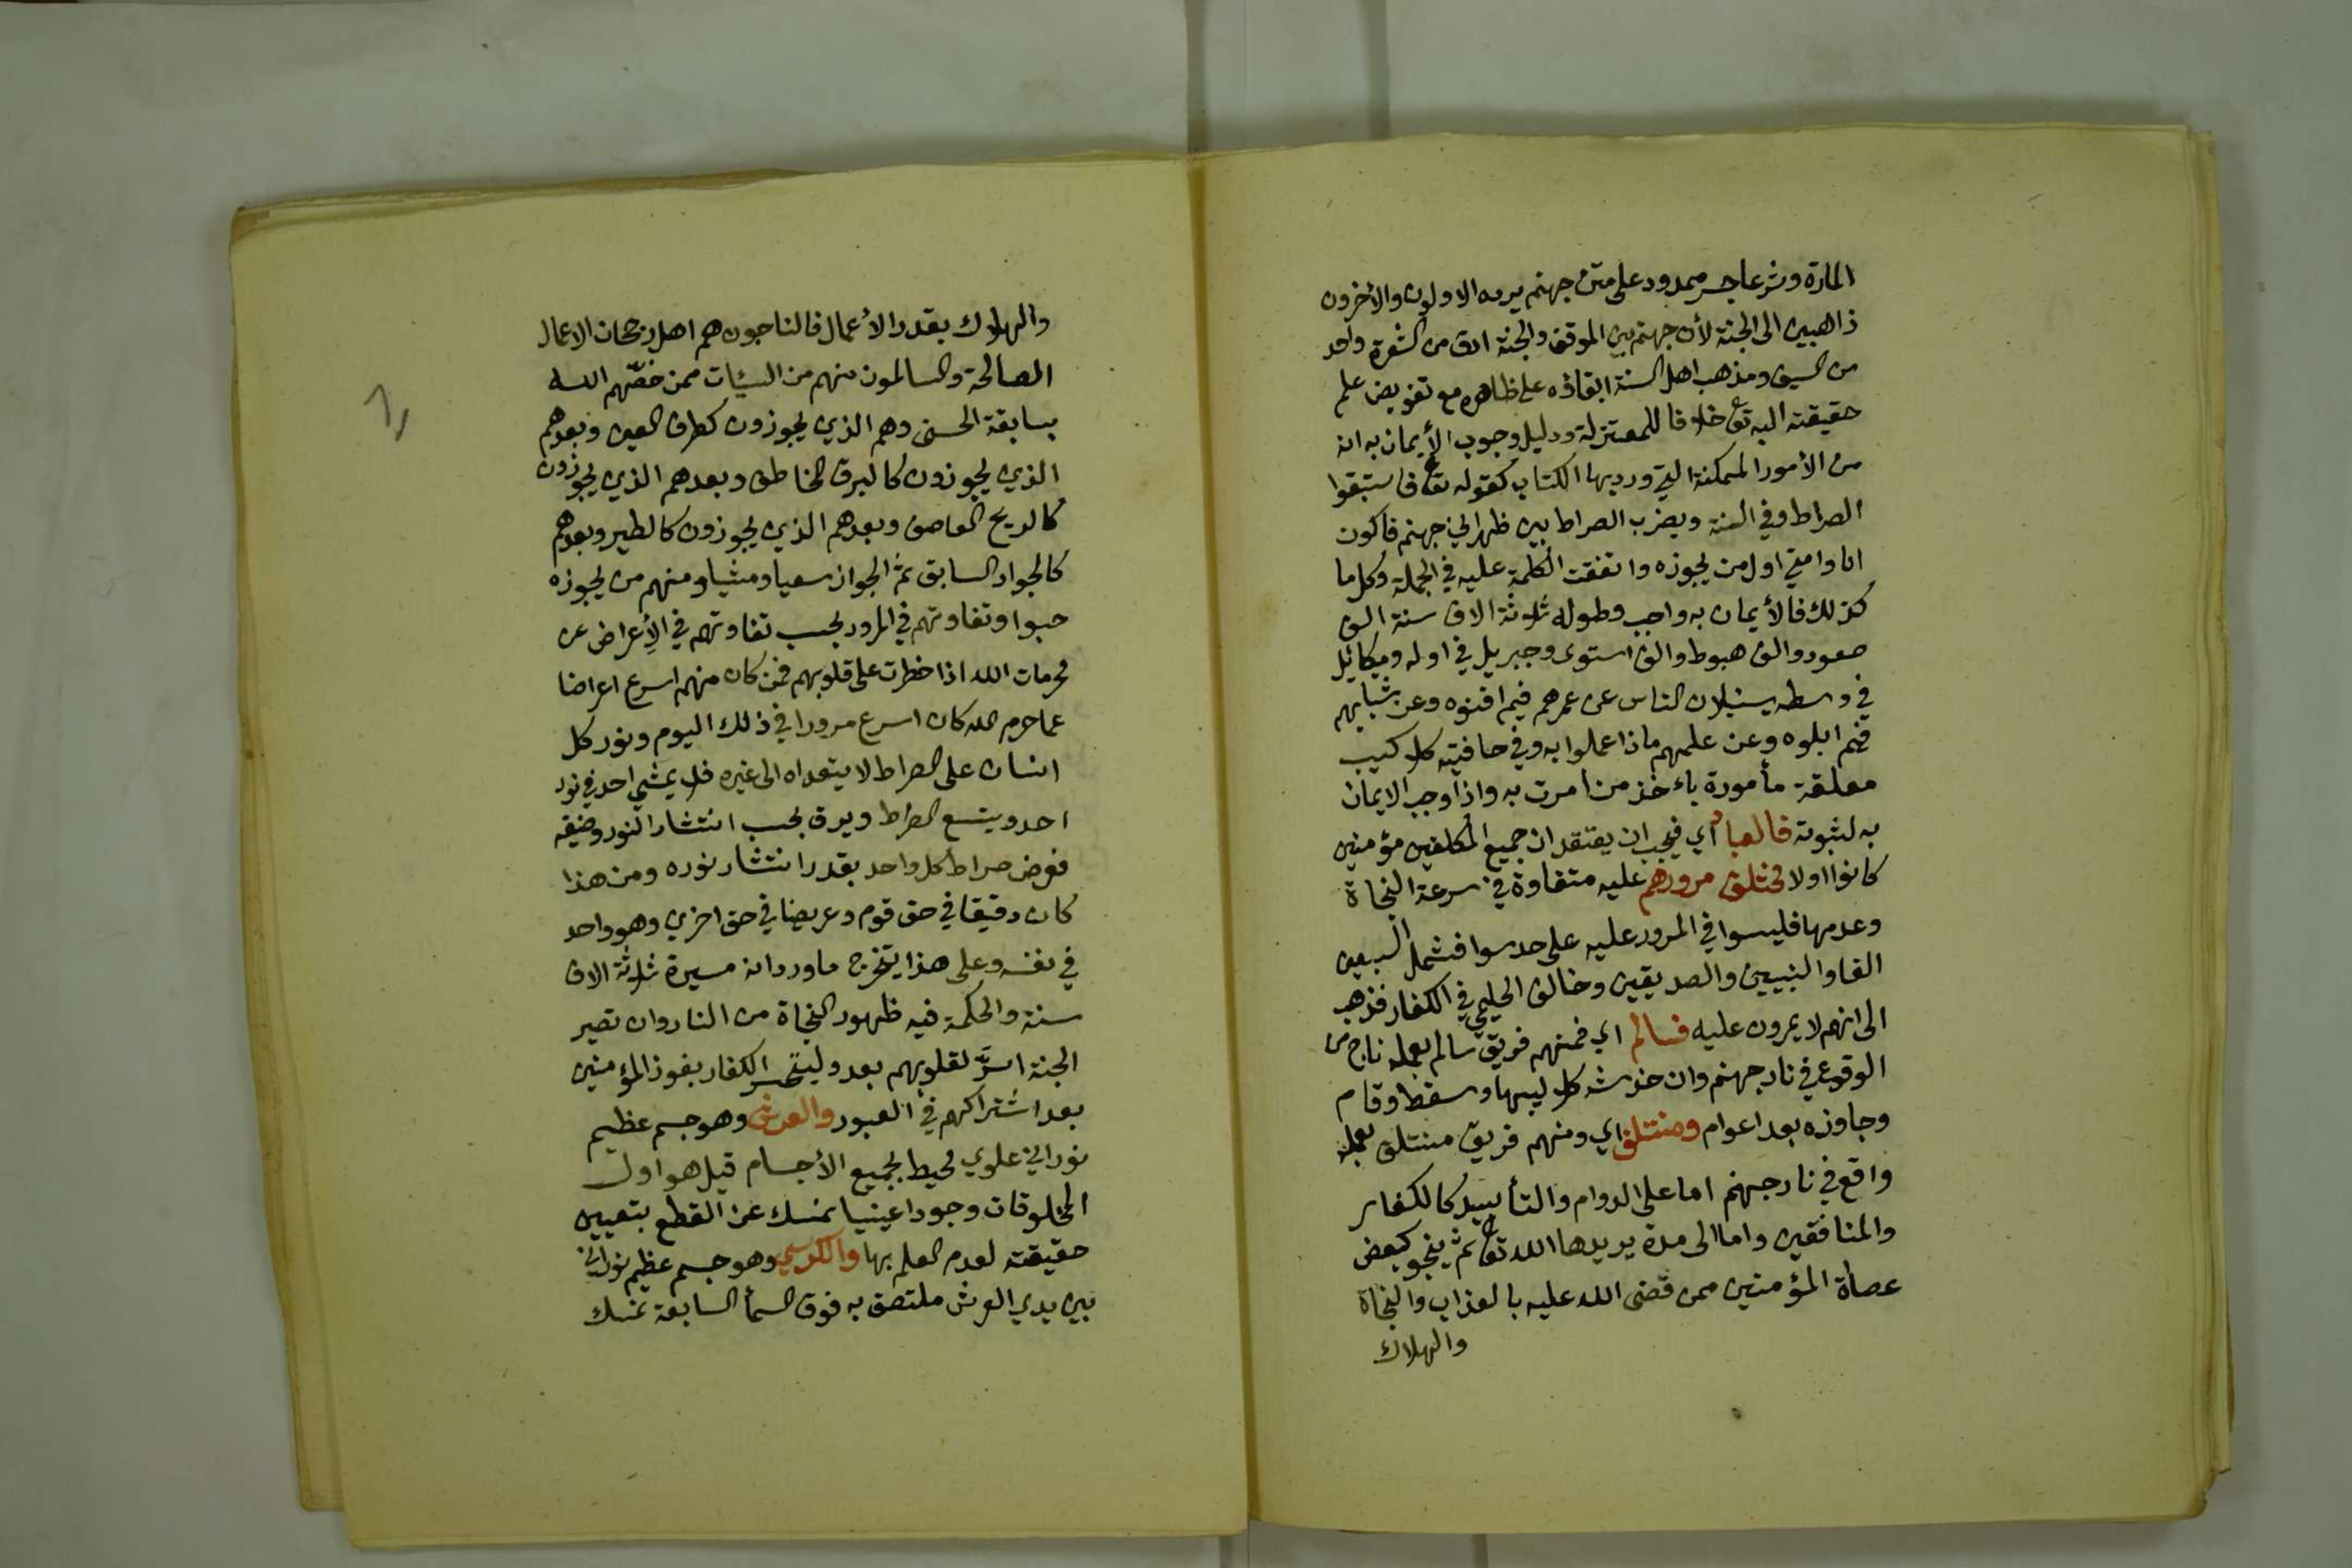 المارة وشرعا جسر ممدود على متن جهنم يرده الاولون والأخرون
ذاهبين الى الجنة لأن جهنم بين الموقف والجنة ادق من الشعرة واحد
من السيف ومذهب اهل السنة ابقاؤه على ظاهره مع تفويض علم
حقيقته اليه تع خلافا للمعتزلة ودليل وجوب الأيمان به انه
من الأمور الممكنة التي ورد بها الكتاب كقوله تعا فاستبقوا
الصراط وفي السنة ويضرب الصراط بين ظهراني جهنم فاكون
انا وامتي اول من يجوزه واتفقت الكلمة عليه في الجملة وكل ما
كذلك فالأيمان به واجب وطوله ثلوثة الاف سنة الف
صعود والف هبوط والف استوى وجبريل في اوله وميكائيل
في وسطه يسئلان الناس عن عمرهم فيم افنوه وعن شبابهم
فيم ابلوه وعن علمهم ماذا عملوا به وفي حافتيه كلاليب
معلقة مأمورة باءخذ من امرت به واذا وجب الايمان
به لثبوته فالعباد أي فيجب ان يعتقد ان جميع المكلفين مؤمنين
كانوا اولا مختلف مرورهم عليه متفاوة في سرعة النجاة
وعدمها فليسوا في المرور عليه على حد سوا فشمل السبعين
الفا والنبيين والصديقين وخالف الحليمي في الكفار فذهب
الى انهم لا يمرون عليه فسالم اي فمنهم فريق سالم بعمله ناج من
الوقوع في نار جهنم وان خدشته كلاليبها وسقط وقام
وجاوزه بعد اعوام ومنتلف اي ومنهم فريق منتلف بعمله
واقع في نار جهنم اما على الدوام والتأبيد كالكفار
والمنافقين واما الى مدة يريدها الله تعا ثم ينجو كبعض
عصاة المؤمنين ممن قضى الله عليه بالعذاب والنجاة
والهلاك
والهلاك بقدر الأعمال فالناجون هم اهل رجحان الاعمال
الصالحة والسالمون منهم من السيئات ممن خصّهم الله
بسابقة الحسنى وهم الذي يجوزون كطرف العين وبعدهم
الذي يجوزون كالبرق الخاطف وبعدهم الذي يجوزون
كالريح العاصف وبعدهم الذي يجوزون كالطير وبعدهم
كالجواد السابق ثم الجواز سعيا ومشيا ومنهم من يجوزه
حبوا وتفاوتهم في المرور بحسب تفاوتهم في الأِعراض عن
محرمات الله اذا خطرت على قلوبهم فمن كان منهم اسرع اعراضا
عما حرم الله كان اسرع مرورا في ذلك اليوم ونور كل
انسان على الصراط لا يتعداه الى غيره فلا يمشي احد في نور
احد ويتسع الصراط ويدق بحسب انتشار النور وضيقه
فعرض صراط كل واحد بقدر انتشار نوره ومن هذا
كان دقيقا في حق قوم وعريضا في حق اخري وهو واحد
في نفسه وعلى هذا يتخرج ما ورد انه مسيرة ثلاثة الاف
سنة والحكمة فيه ظهور النجاة من النار وان تصير
الجنة اسرَّ لقلوبهم بعد وليتحسر الكفار بفوز المؤمنين
بعد اشتراكهم في العبور والعرش وهو جسم عظيم
نوراني علوي محيط بجميع الأجسام قيل هو اول
المخلوقات وجودا عينيا نمسك عن القطع بتعيين
حقيقته لعدم العلم بها والكرسي وهو جسم عظيم نوراني
بين يدي العرش ملتصق به فوق السمأ السابعة نمسك